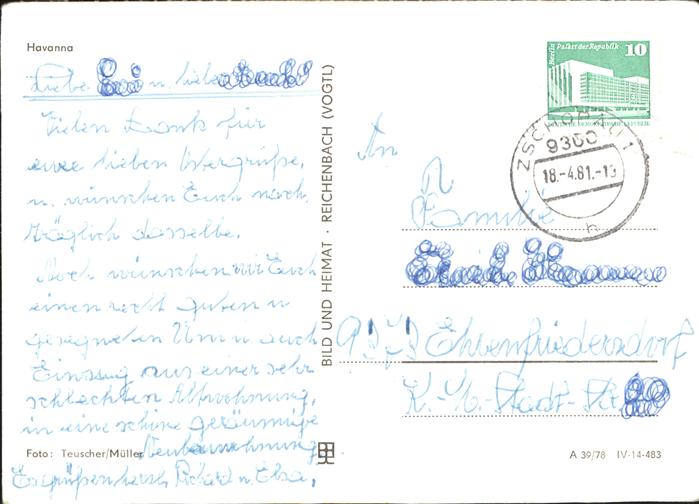 Havanna
Liebe u. liebe
Vielen Dank für
eure lieben Ostergrüße,
u. wünschen Euch nach
träglich dasselbe.
Auch wünschen wir Euch
einen recht guten u
gesegneten Um u auch
Einzug aus einer sehr
schlechten Altwohnung,
in eine schöne geräumige
Neubauwohnung
Es grüßen herzl. Richard u. Elsa,
Foto: Teuscher/Müller
BILD UND HEIMAT · REICHENBACH (VOGTL)
Berlin Palast der Republik 10
ZSCHOPAU 1
9360
18.-4.81.-19
h
An
Familie
9373 Ehrenfriedersdorf
K.-M.-Stadt-Str.
A 39/78 IV-14-483